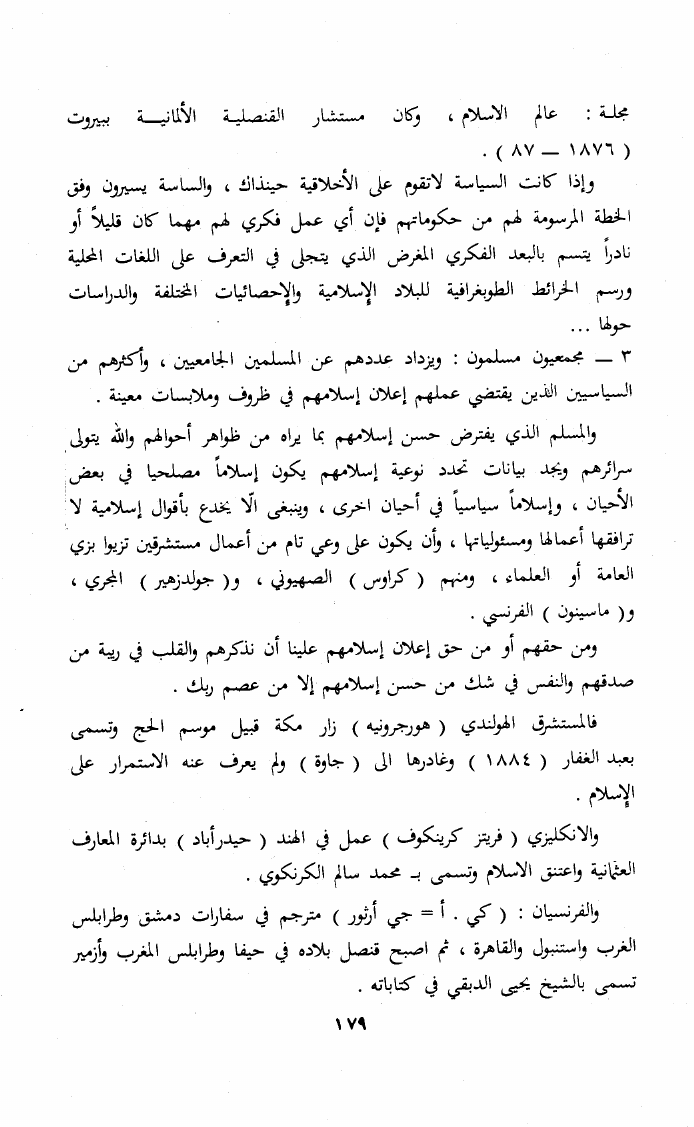 مجلة : عالم الاسلام ، وكان مستشار القنصلية الألمانية ببيروت
( ١٨٧٦ — ٨٧ ) .
وإذا كانت السياسة لاتقوم على الأخلاقية حينذاك ، والساسة يسيرون وفق
الخطة المرسومة لهم من حكوماتهم فإن أي عمل فكري لهم مهما كان قليلاً أو
نادراً يتسم بالبعد الفكري المغرض الذي يتجلى في التعرف على اللغات المحلية
ورسم الخرائط الطوبغرافية للبلاد الإسلامية والإحصائيات المختلفة والدراسات
حولها ...
٣ — مجمعيون مسلمون : ويزداد عددهم عن المسلمين الجامعيين ، وأكثرهم من
السياسيين اللذين يقتضي عملهم إعلان إسلامهم في ظروف وملابسات معينة .
والمسلم الذي يفترض حسن إسلامهم بما يراه من ظواهر أحوالهم والله يتولى
سرائرهم ويجد بيانات تحدد نوعية إسلامهم يكون إسلاماً مصلحيا في بعض
الأحيان ، وإسلاماً سياسياً في أحيان اخرى ، وينبغى الّا يخدع بأقوال إسلامية لا
ترافقها أعمالها ومسئولياتها ، وأن يكون على وعي تام من أعمال مستشرقين تزيوا بزي
العامة أو العلماء ، ومنهم ( كراوس ) الصهيوني ، و( جولدزهير ) المجري ،
و( ماسينون ) الفرنسي .
ومن حقهم أو من حق إعلان إسلامهم علينا أن نذكرهم والقلب في ريبة من
صدقهم والنفس في شك من حسن إسلامهم إلا من عصم ربك .
فالمستشرق الهولندي ( هورجرونيه ) زار مكة قبيل موسم الحج وتسمى
بعبد الغفار ( ١٨٨٤ ) وغادرها الى ( جاوة ) ولم يعرف عنه الاستمرار على
الإسلام .
والانكليزي ( فريتز كرينكوف ) عمل في الهند ( حيدرأباد ) بدائرة المعارف
العثمانية واعتنق الاسلام وتسمى بـ محمد سالم الكرنكوي .
والفرنسيان : ( كي . أ = جي أرثور ) مترجم في سفارات دمشق وطرابلس
الغرب واستنبول والقاهرة ، ثم اصبح قنصل بلاده في حيفا وطرابلس المغرب وأزمير
تسمى بالشيخ يحيى الدبقي في كتاباته .
١٧٩